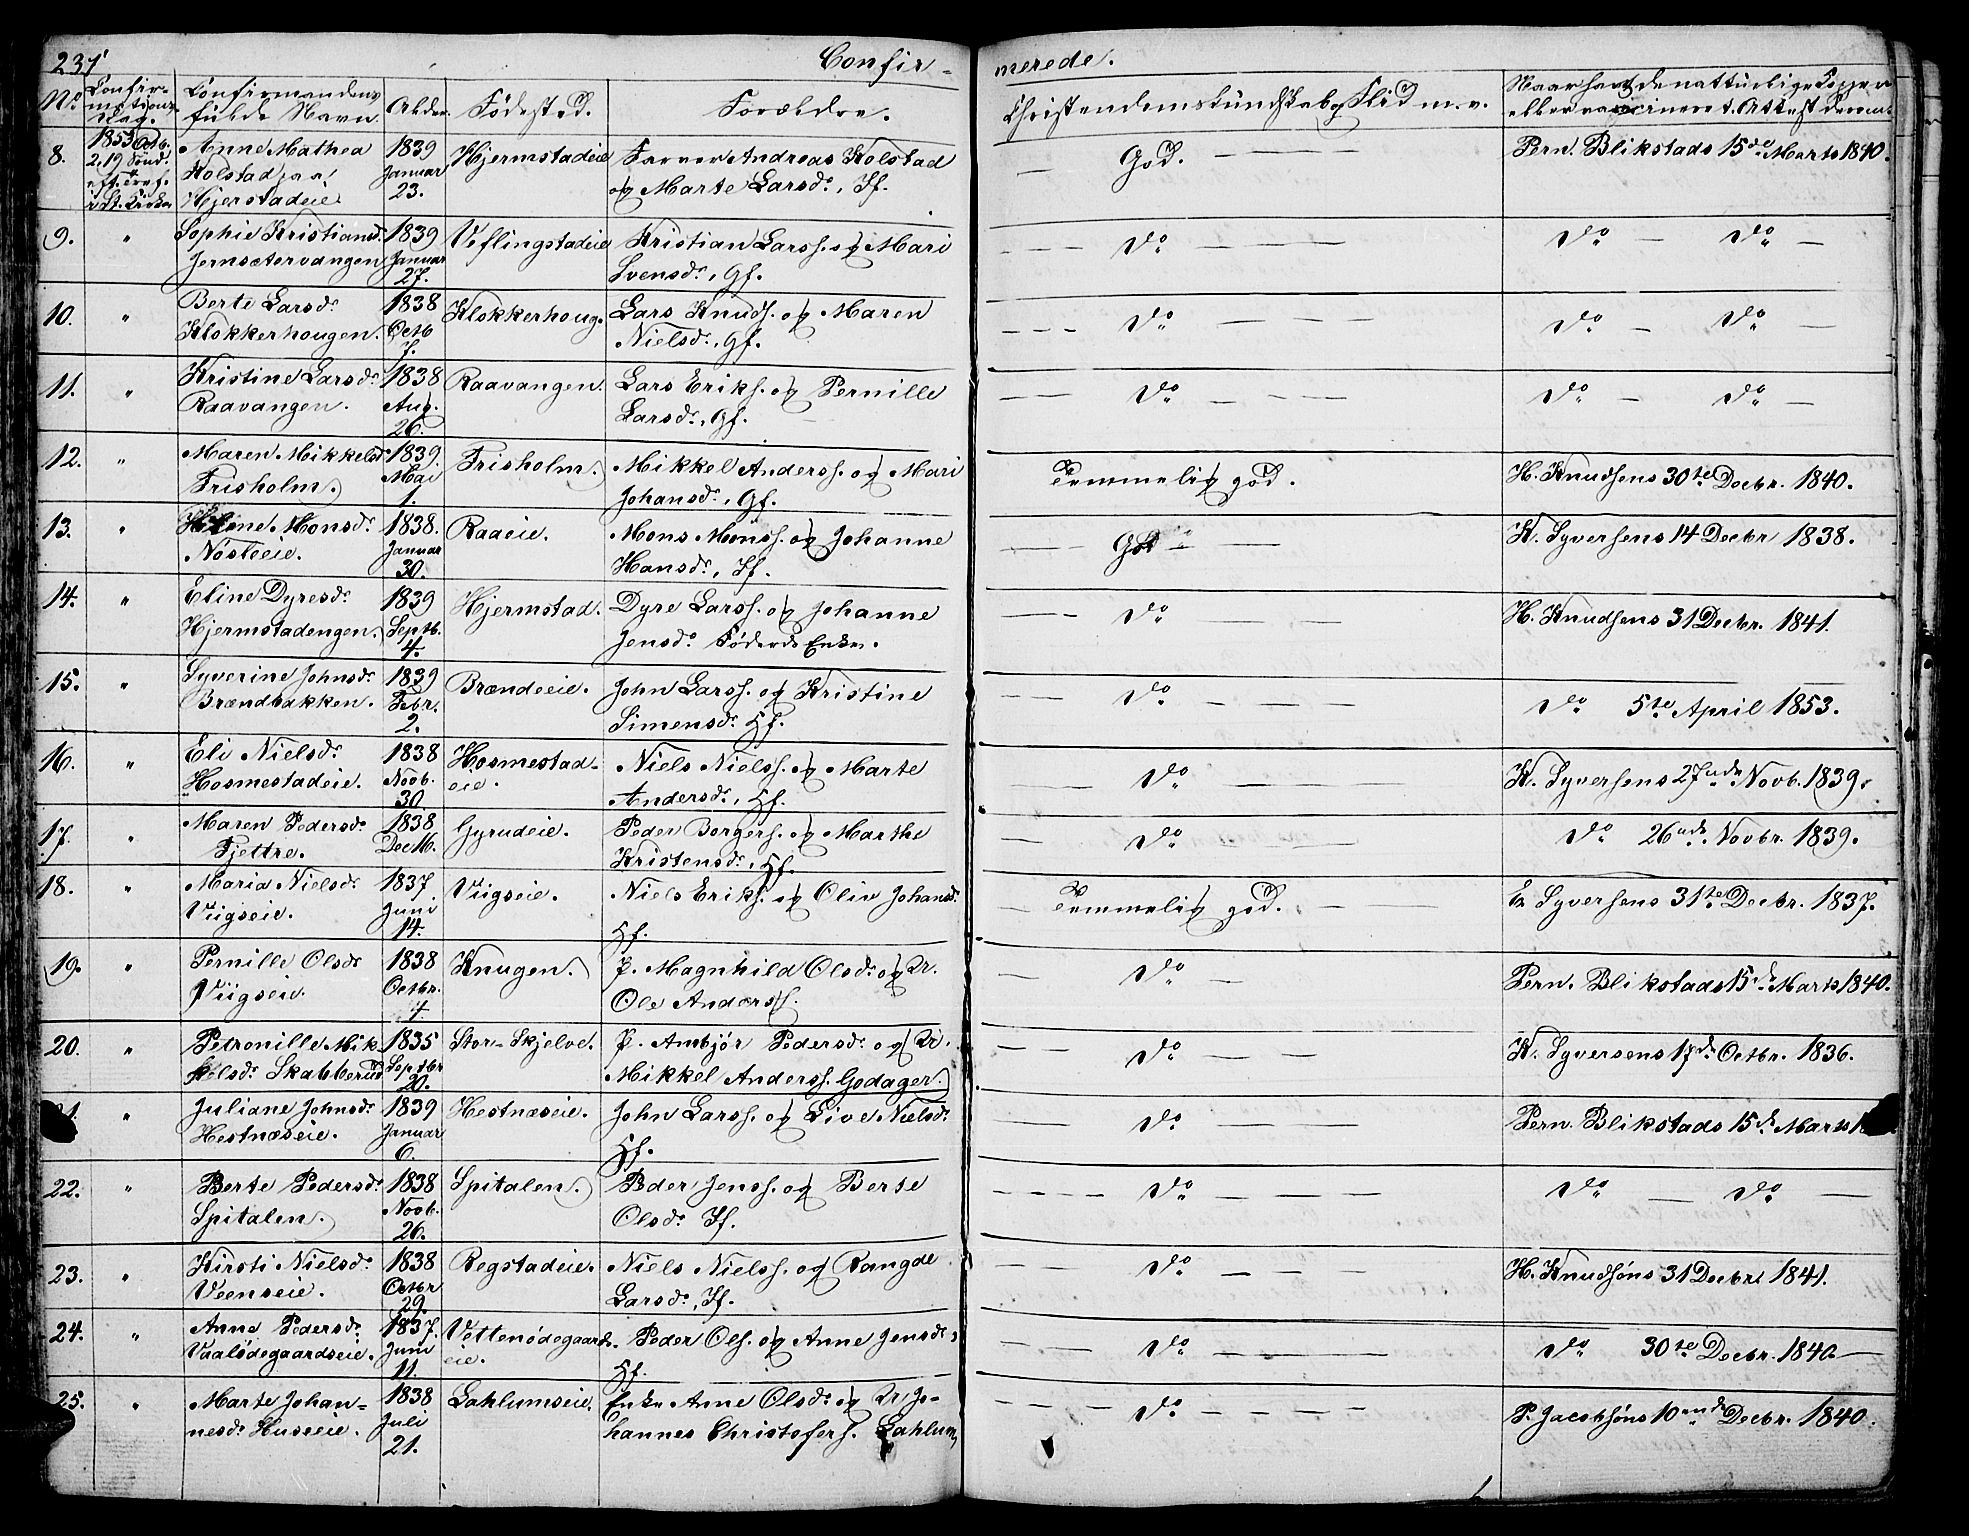 231
Confir-
merede.
No
Confir-
mations
Dag.
Confirmandens
fulde Navn
Alder.
Födested.
Forældre.
Christendomskundskab, Flid m. v.
Naar havt de naturlige Kopper
eller vaccineret. Attest derom.
8.
1853 Octb.
2, 19 Sönd.
eft. Tref.
Anne Mathea
Kolstad paa
Hjerstadeie
1839
Januar
23.
Hjermstadeie
Andreas Kolstad
og Marte Larsdr. If.
God.
Pern. Blikstads 15de Marts 1840.
9.
"
Sophie Kristiansd.
Jernsætervangen
1839
Januar
27.
Veflingstadeie
Kristian Larss. og Mari
Svensdr., Gf.
do
do do
10.
"
Berte Larsdr.
Klokkerhougen.
1838
Octb
7.
Klokkerhoug.
Lars Knuds. og Maren
Nielsdr., Gf.
do
do do
11.
"
Kristine Larsdr.
Raavangen.
1838
Aug.
26.
Raavangen.
Lars Eriks. og Pernille
Larsdr., Gf.
do
do do
12.
"
Maren Mikkelsd
Frisholm.
1839
Mai
1.
Frisholm.
Mikkel Anderss. og Mari
Johansdr., Gf.
Temmelig god.
H. Knudsens 30te Decbr. 1840.
13.
"
Helene Monsdr.
Nösteeie.
1838.
Januar
30.
Raaeie.
Mons Monss. og Johanne
Hansdr., If.
God
K. Syversens 14 Decbr 1838.
14.
"
Eline Dyresdr.
Hjermstadengen.
1839
Septb.
4.
Hjermstad.
Dyre Larss. og Johanne
Jensdr. Föderaads Enke.
do
H. Knudsens 31 Decbr. 1841.
15.
"
Syverine Johnsdr.
Brændbakken.
1839
Febr.
2.
Brændeeie.
John Larss. og Kristine
Simensdr. Hf.
do
do 5te April 1853.
16.
"
Eli Nielsdr.
Hosmestadeie.
1838
Novb.
30
Hosmestad-
eie.
Niels Nielss. og Marte
Andersdr., Hf.
do
K. Syversens 27nde Novb. 1839.
17.
"
Maren Pedersdr.
Fjettre.
1838
Dec 16.
Gyrudeie.
Peder Borgers. og Marthe
Kristensdr., Hf.
do
do 26nde Novbr. 1839.
18.
"
Maria Nielsdr.
Viigseie.
1837
Juni
14.
Viigseie.
Niels Eriks. og Olia Johansdr.
Hf.
Temmelig god.
E. Syversens 31te Decbr. 1837.
19.
"
Pernille Olsdr
Viigseie.
1838
Octbr.
4.
Knugen.
P. Magnhild Olsdr. og Ur.
Ole Anderss.
do
Pern. Blikstads 15de Marts 1840.
20.
"
Petronille Mik-
kelsdr. Skabberud
1835
Septbr
20.
Stor-Skjelve.
P. Ambjör Pedersdr. og Ur.
Mikkel Anderss. Godager.
do
K. Syversens 17de Octbr. 1836.
21.
"
Juliane Johnsdr.
Hestnæseie.
1839
Januar
6.
Hestnæseie.
John Larss. og Live Nielsdr.
Hf.
do
Pern. Blikstads 15de Marts
22.
"
Berte Pedersdr.
Spitalen.
1838
Novb.
26.
Spitalen.
Peder Jenss. og Berte
Olsdr. If.
do
do do
23.
"
Kirsti Nielsdr.
Veenseie.
1838
Octbr
29.
Regstadeie.
Niels Nielss. og Rangde
Larsdr., If.
do
H. Knudsöns 31 Decbr. 1841.
24.
"
Anne Pedersdr.
Vaalödegaardseie.
1837.
Juni
11.
Vettenödegaards-
eie.
Peder Ols. og Anne Jensdr.,
Hf.
do
do 30te Decbr. 1840
25.
"
Marte Johan-
nesdr. Huseeie.
1838
Juli
21.
Lahlumseie.
Enke Anne Olsdr. og Ur Jo-
hannes Christofers. Lahlum,
do
P. Jacobsöns 10nde Decbr. 1840.